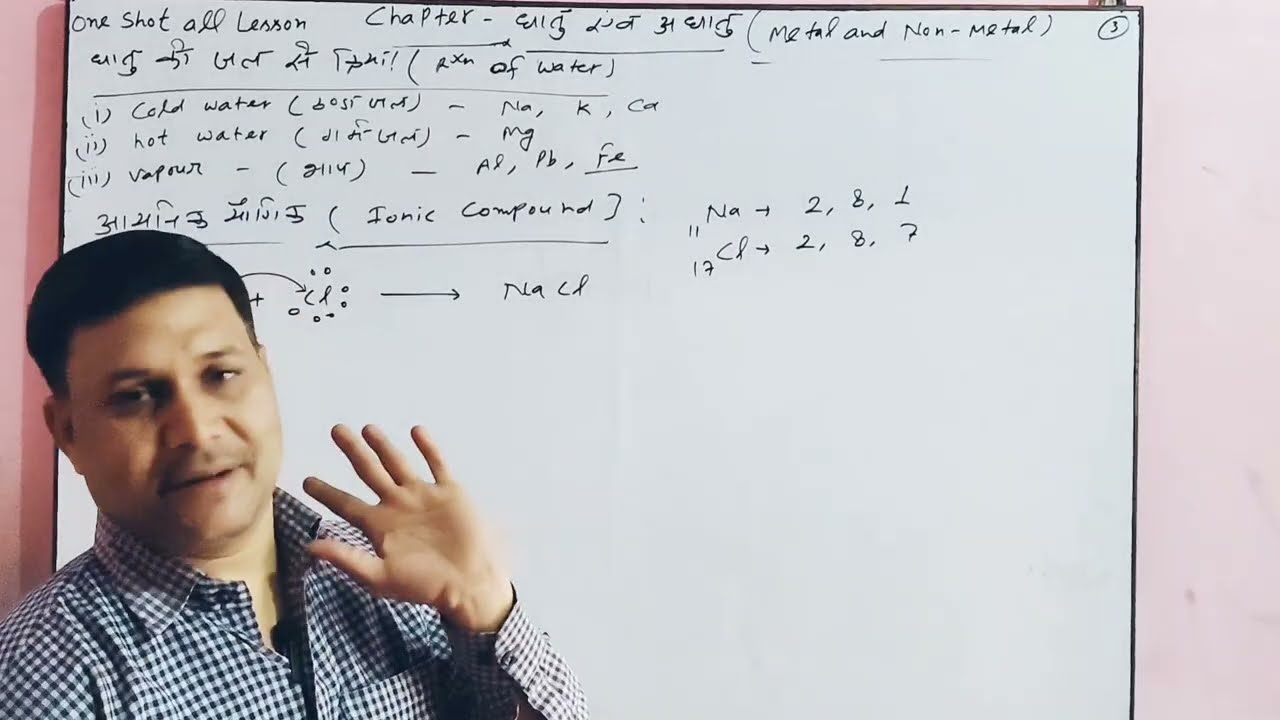 One Shot all Lesson Chapter - धातु एंव अधातु (Metal and Non-Metal) ③
धातु की जल से क्रिया! (Rxn of water)
(i) Cold water (ठण्डा जल) - Na, K, Ca
(ii) hot water (गर्म जल) - Mg
(iii) vapour - (भाप) - Al, Pb, Fe
आयनिक यौगिक (Ionic Compound] :
₁₁Na → 2, 8, 1
₁₇Cl → 2, 8, 7
+ Cl ⟶ NaCl